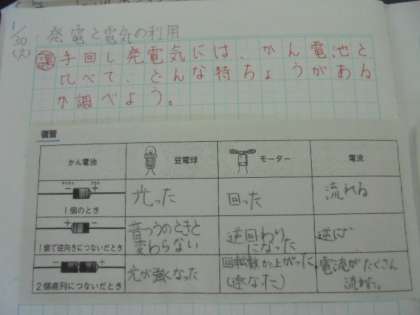 1/30(火) 発電と電気の利用
課 手回し発電気には、かん電池と
比べて、どんな特ちょうがある
か調べよう。
復習
かん電池 豆電球 モーター 電流
1個のとき 光った 回った 流れる
1個で逆向きにつないだとき 普つうのときと変わらない 逆回わりになった 逆に
2個直列につないだとき 光が強くなった 回転数が上がった(速なた) 電流がたくさん流れた。